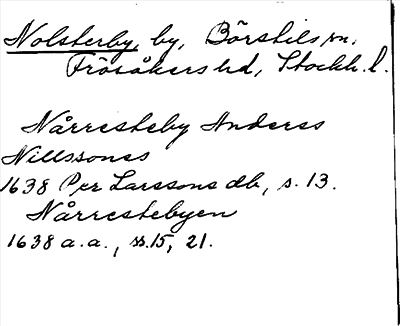 Nolsterby, by, Börstils sn,
Frösåkers hd, Stockh. l.
Nårresteby Anderss
Nillssones
1638 Per Larssons db, s. 13.
Nårrestebyen
1638 a.a., ss. 15, 21.